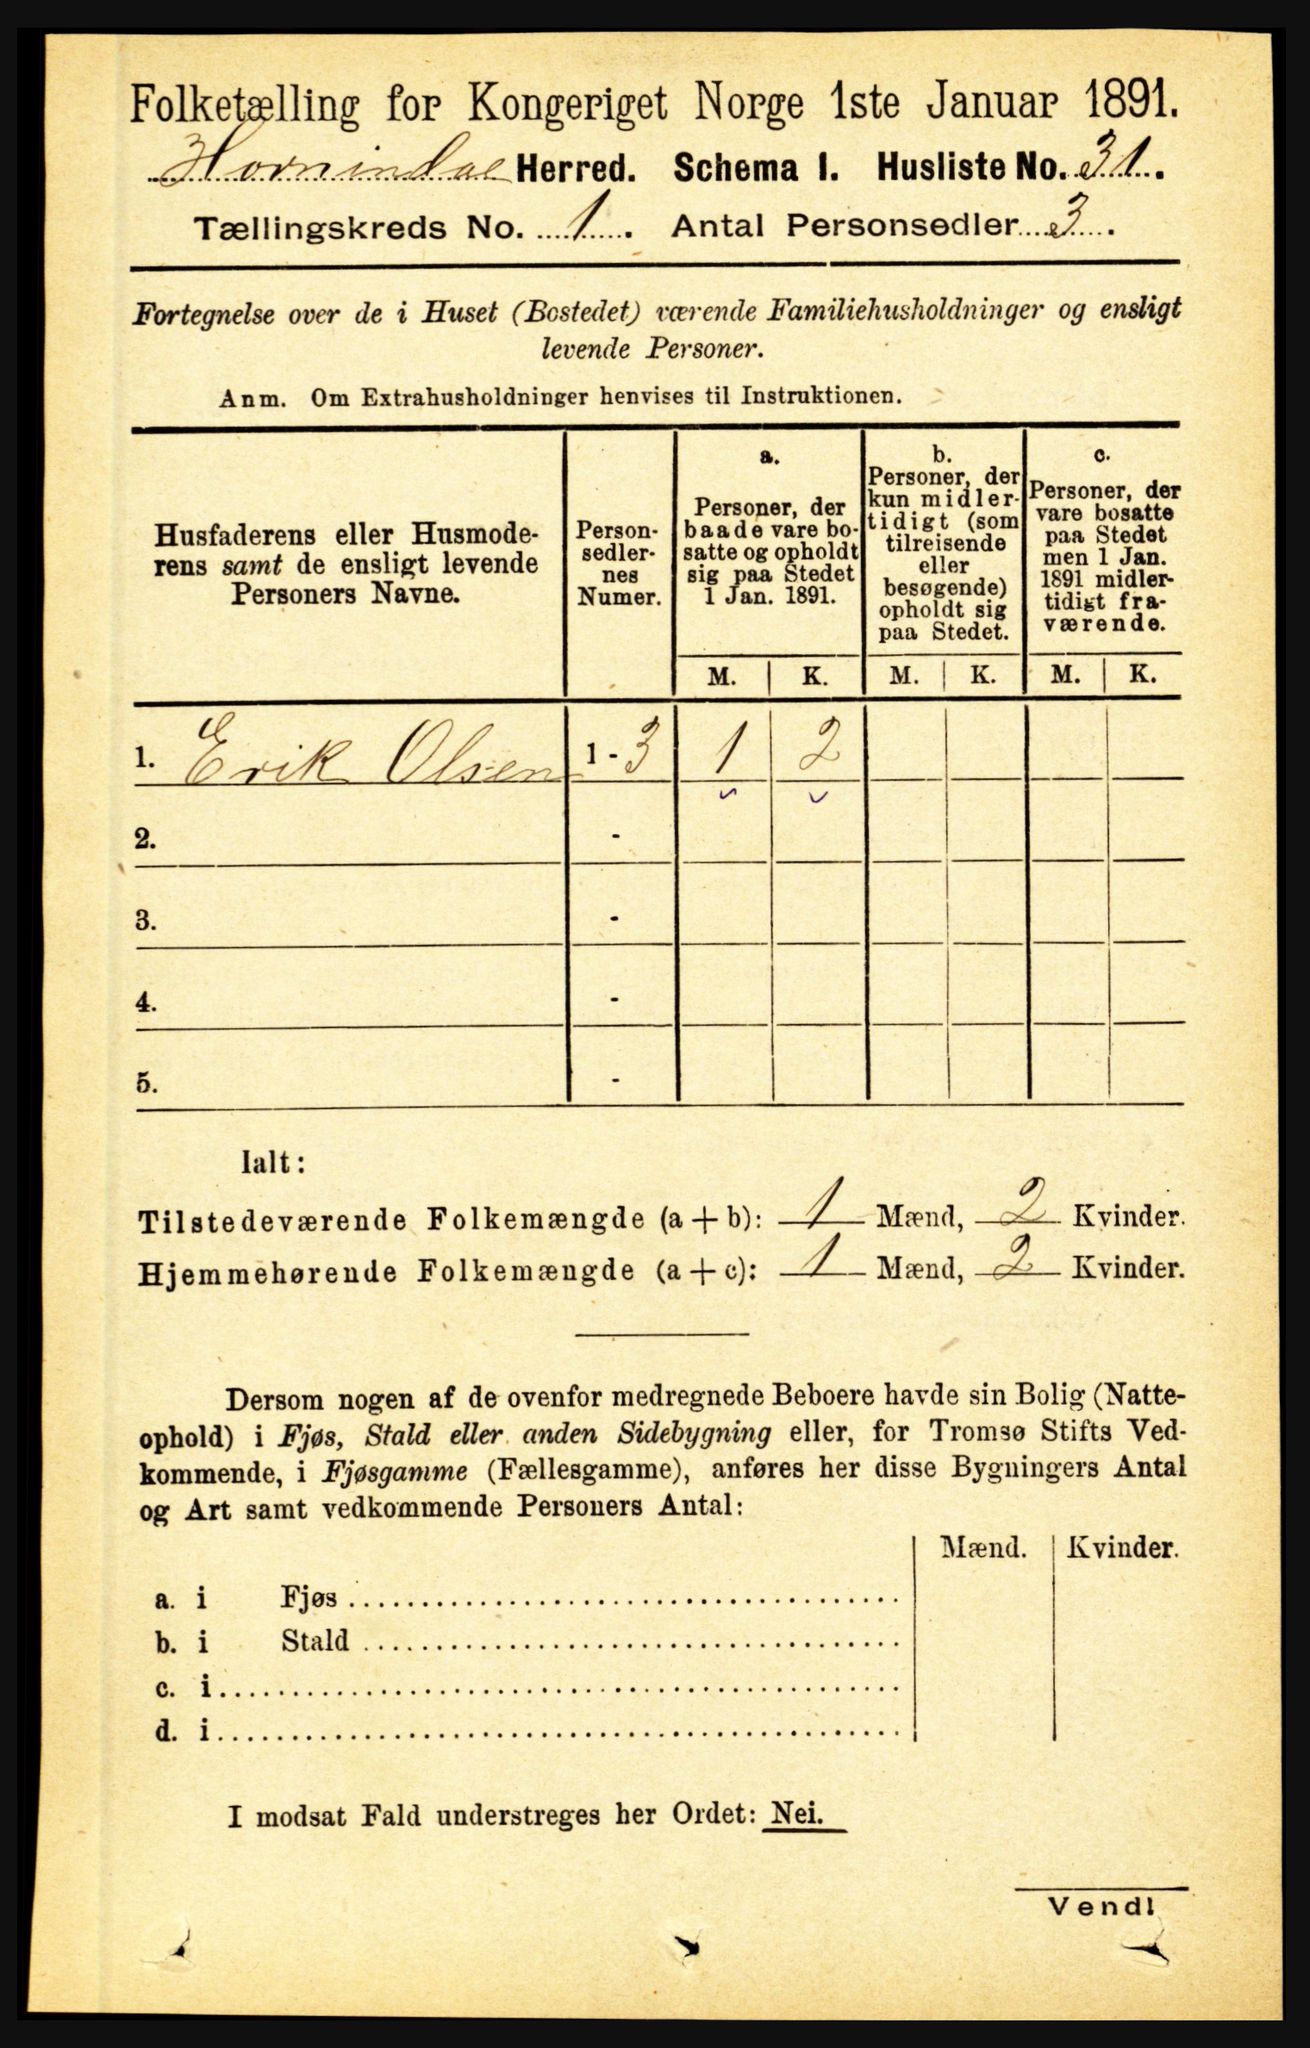 Folketælling for Kongeriget Norge 1ste Januar 1891.
Hornindal Herred. Schema I. Husliste No. 31.
Tællingskreds No. 1. Antal Personsedler 3.
Fortegnelse over de i Huset (Bostedet) værende Familiehusholdninger og ensligt
levende Personer.
Anm. Om Extrahusholdninger henvises til Instruktionen.
Husfaderens eller Husmode-
rens samt de ensligt levende
Personers Navne.
Person-
sedler-
nes
Numer.
a.
Personer, der
baade vare bo-
satte og opholdt
sig paa Stedet
1 Jan. 1891.
b.
Personer, der
kun midler-
tidigt (som
tilreisende
eller
besøgende)
opholdt sig
paa Stedet.
c.
Personer, der
vare bosatte
paa Stedet
men 1 Jan.
1891 midler-
tidigt fra-
værende.
M. K. M. K. M. K.
1. Erik Olsen 1 - 3 1 2
2. -
3. -
4. -
5. -
Ialt:
Tilstedeværende Folkemængde (a + b): 1 Mænd, 2 Kvinder.
Hjemmehørende Folkemængde (a + c): 1 Mænd, 2 Kvinder.
Dersom nogen af de ovenfor medregnede Beboere havde sin Bolig (Natte-
ophold) i Fjøs, Stald eller anden Sidebygning eller, for Tromsø Stifts Ved-
kommende, i Fjøsgamme (Fællesgamme), anføres her disse Bygningers Antal
og Art samt vedkommende Personers Antal:
Mænd. Kvinder.
a. i Fjøs
b. i Stald
c. i
d. i
I modsat Fald understreges her Ordet: Nei.
Vend!